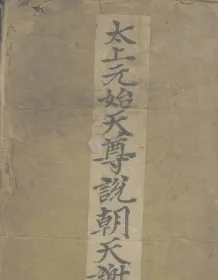 太上元始天尊說朝天謝